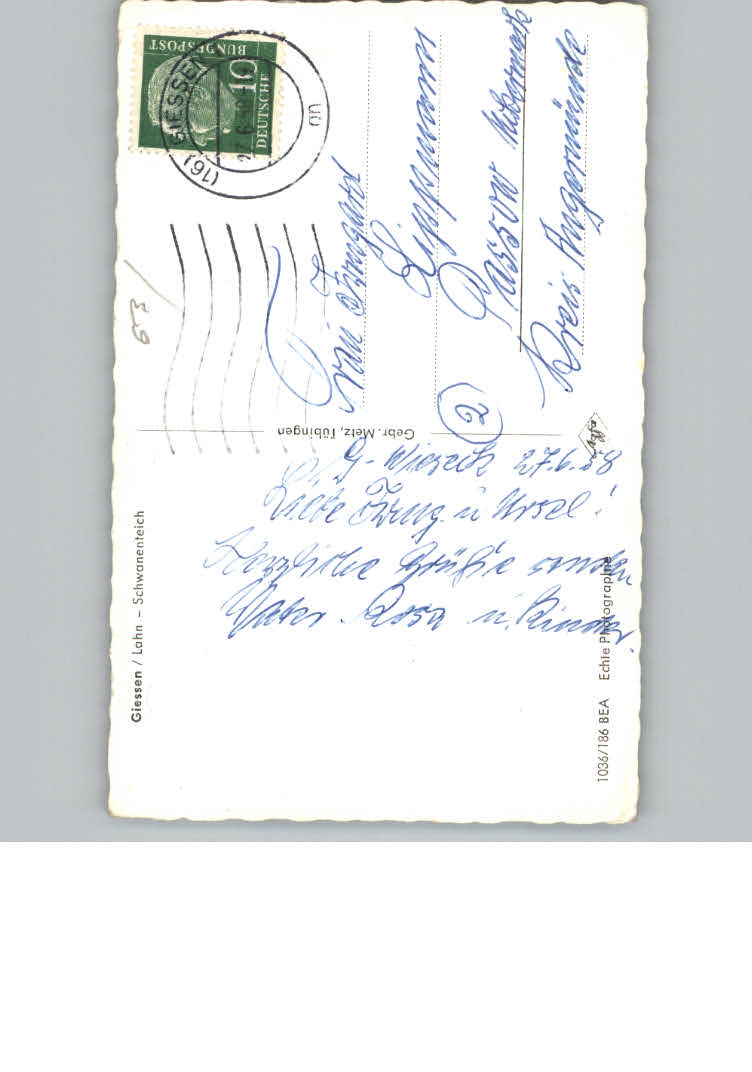 Giessen / Lahn – Schwanenteich
G-Wieseck 27.6.58
Liebe Irmg. u Ursel!
Herzliche Grüße senden
Vater Rosa u. Kinder.
1036/186 BEA Echte Photographie
Gebr. Metz, Tübingen
DEUTSCHE
BUNDESPOST
10
(16) GIESSEN
27.6.58
Frau Irmgard
Lippmann
Passow Uckermark
Kreis Angermünde
2